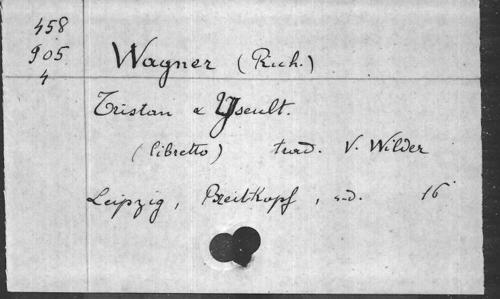 458
905
4
Wagner (Rich.)
Tristan & Yseult.
(libretto) trad. V. Wilder
Leipzig, Breitkopf, s.d. 16°